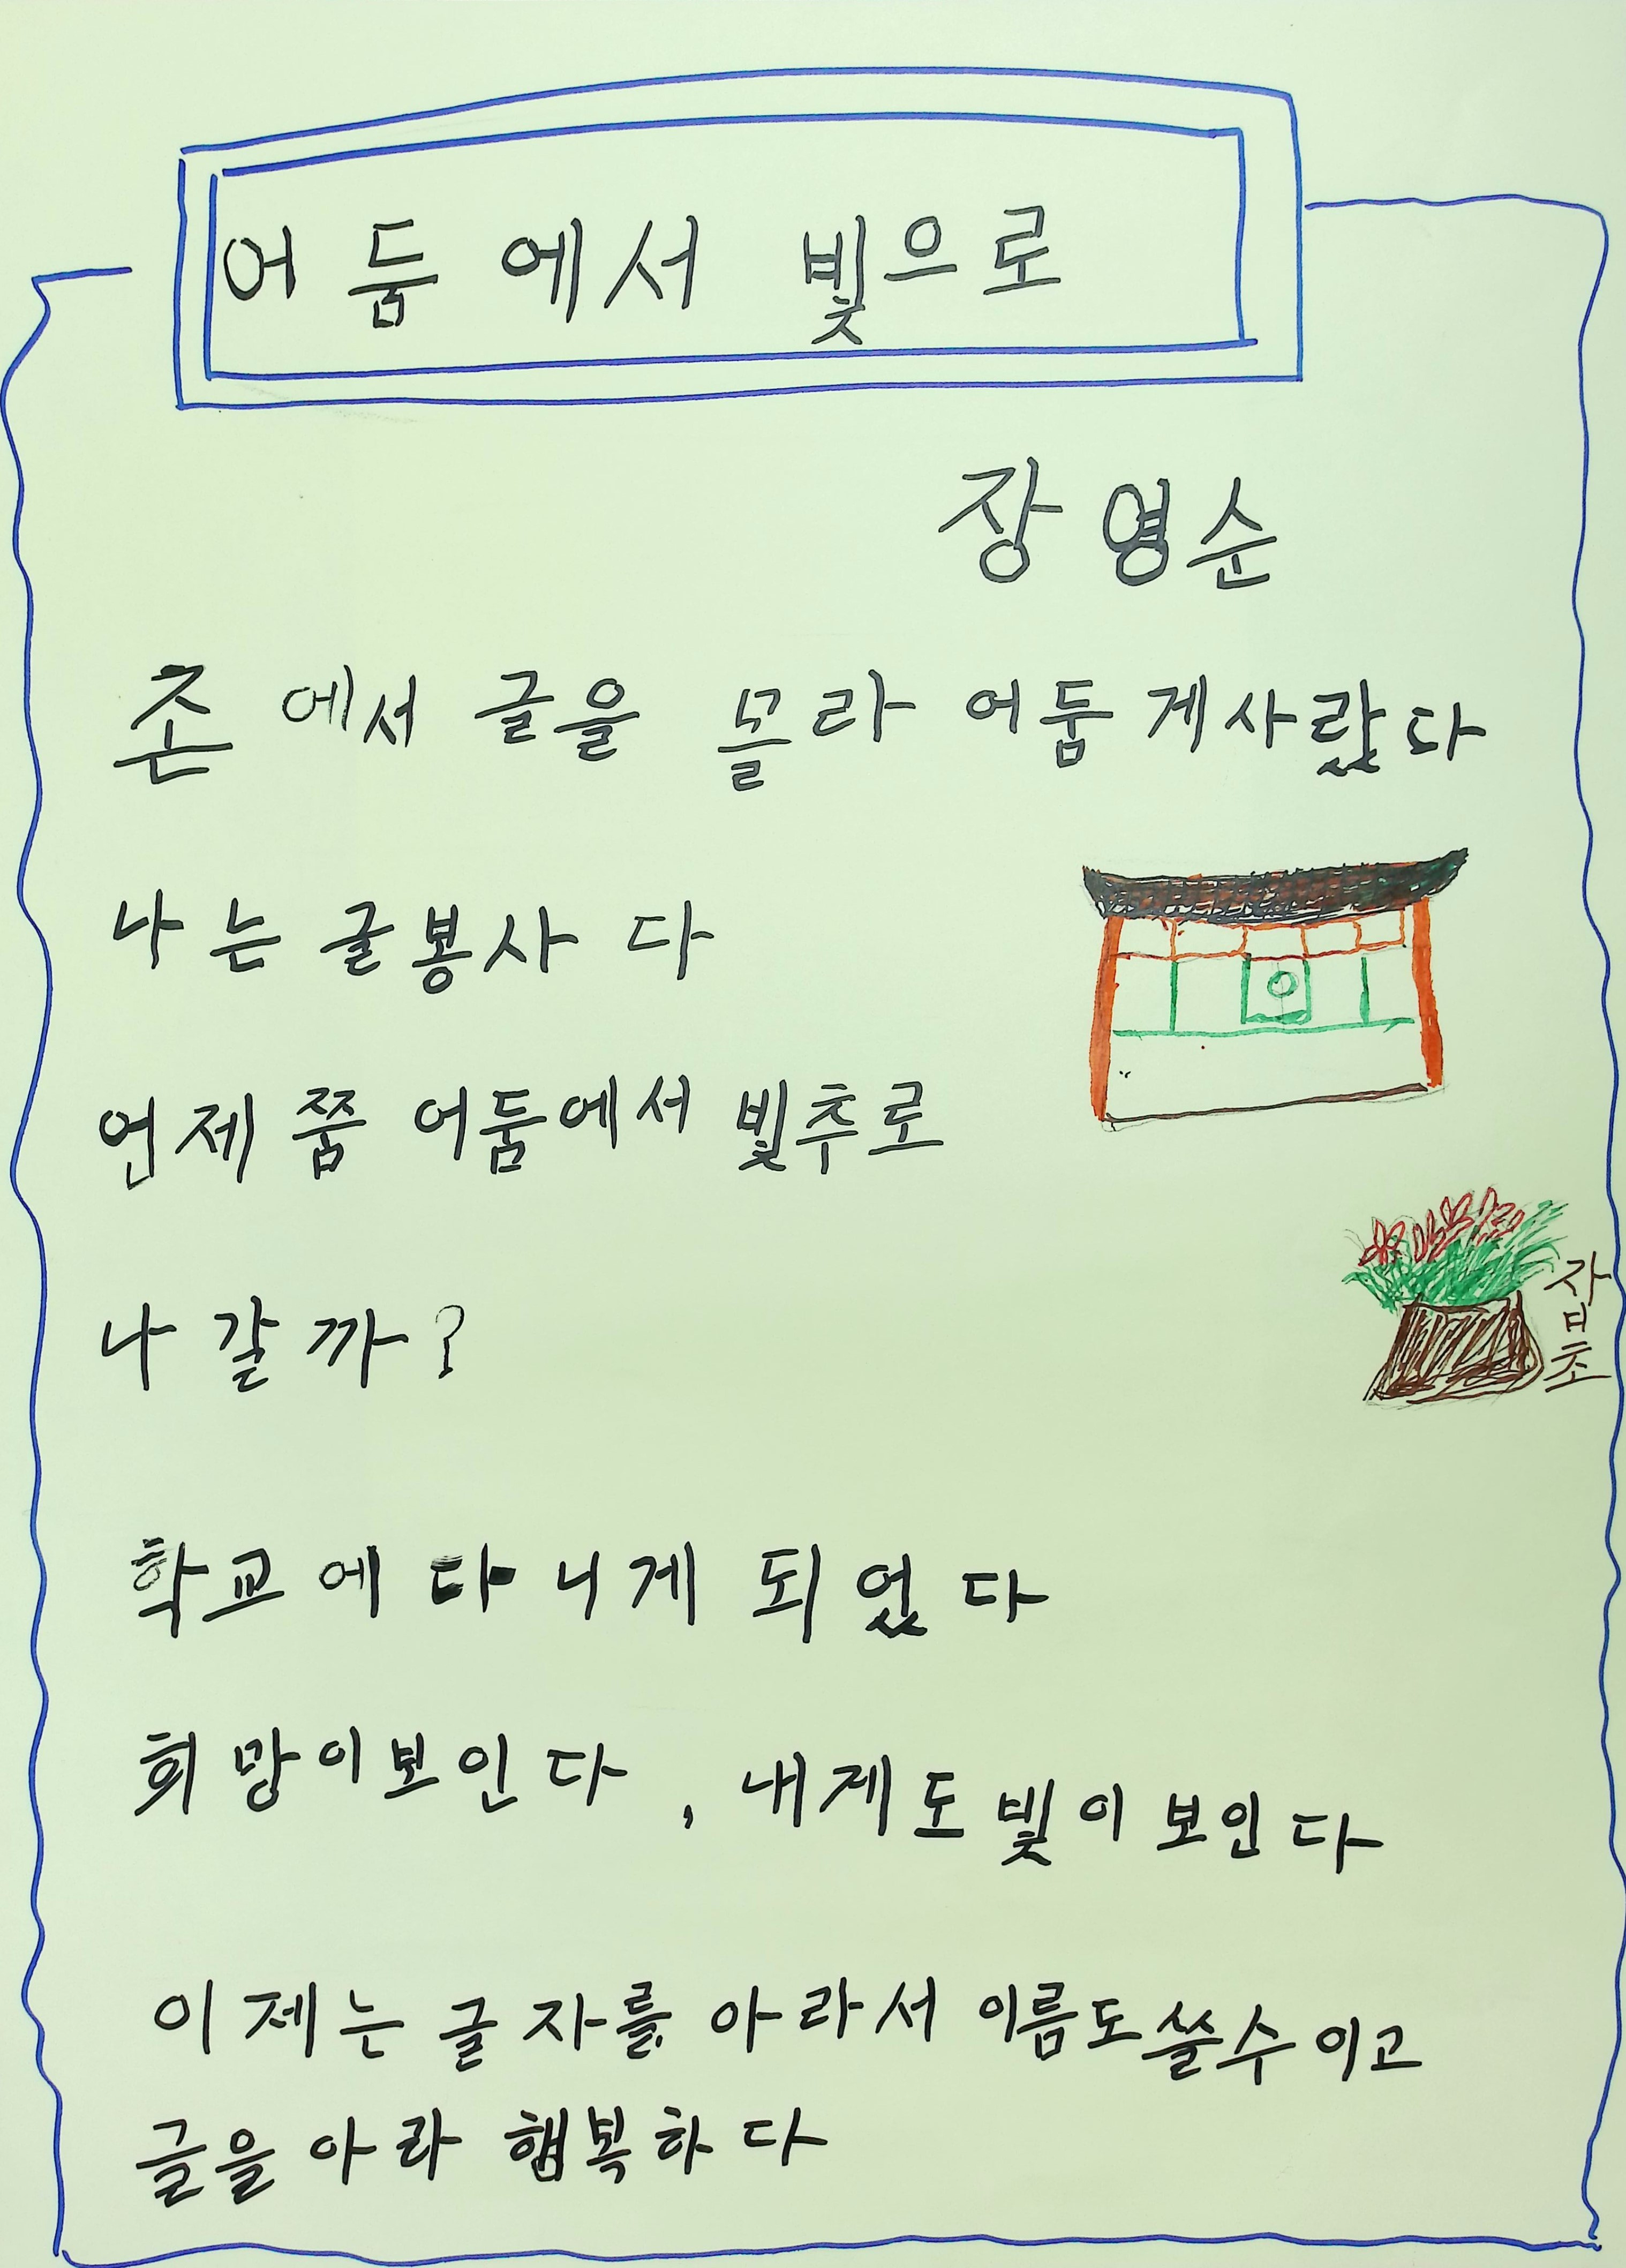 어둠에서 빛으로
장영순
촌에서 글을 몰라 어둠게사랐다
나는 글봉사다
언제쭘 어둠에서 빛추로
나갈까?
자보초
학교에 다니게 되었다
희망이보인다, 내제도빛이 보인다
이제는 글자를 아라서 이름도쓸수이고
글을아라 햄복하다